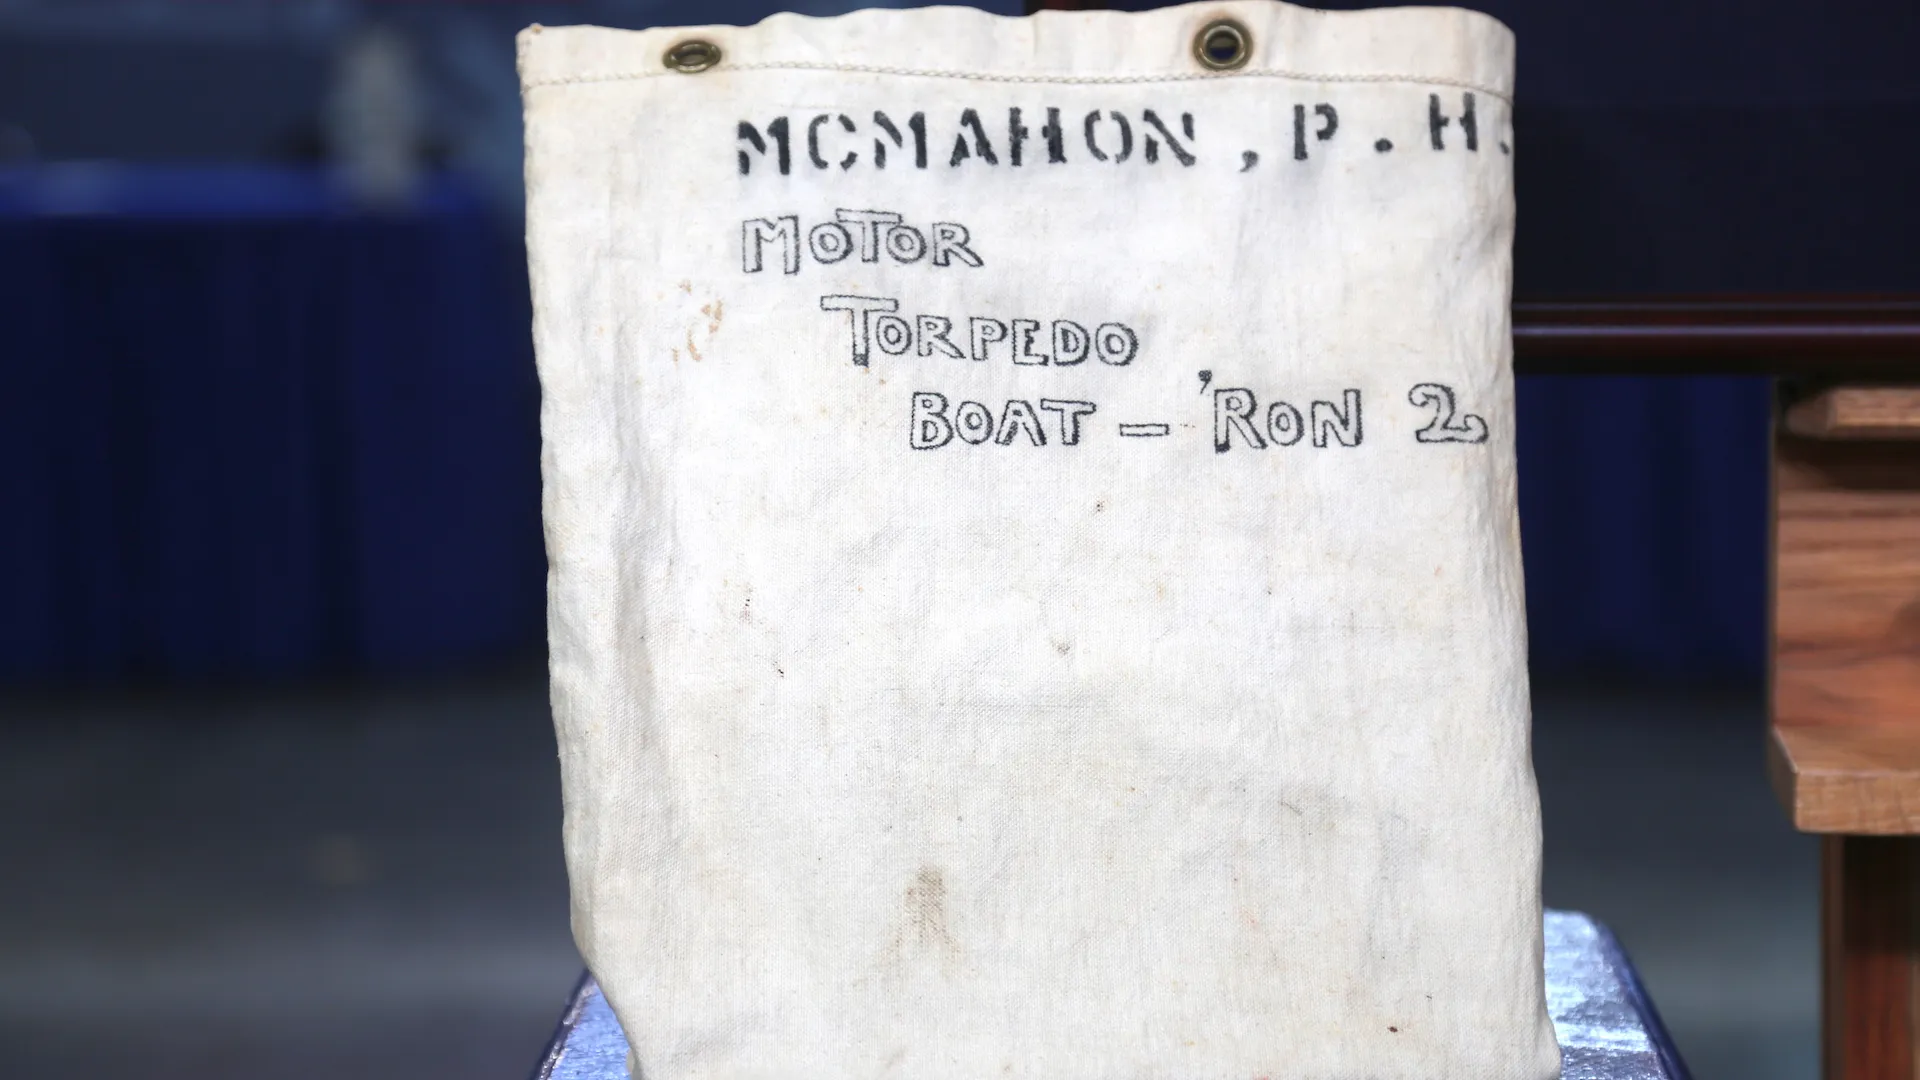 MCMAHON, P. H.
MOTOR
TORPEDO
BOAT - 'RON 2